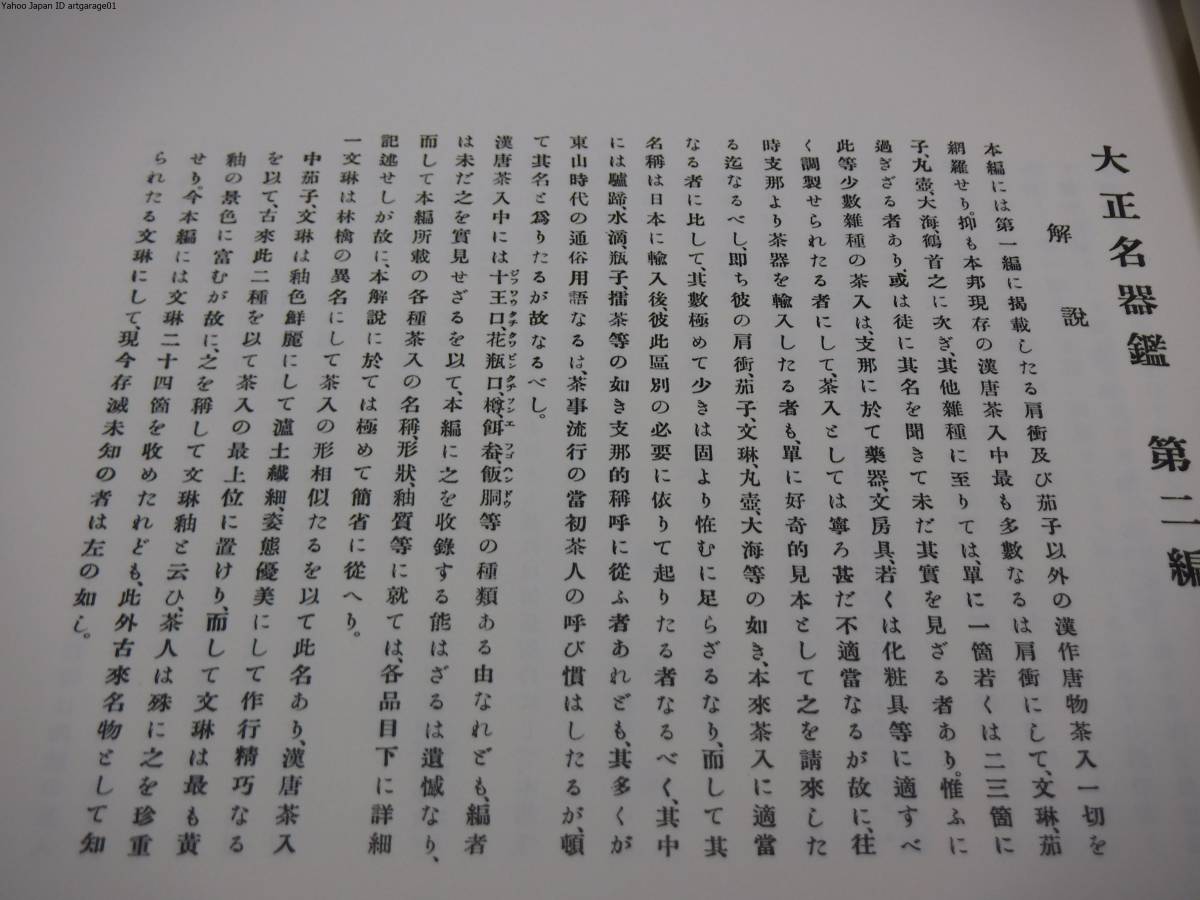 Yahoo Japan ID artgarage01
大正名器鑑 第二編
解說
本編には第一編に揭載したる肩衝及び茄子以外の漢作唐物茶入一切を
網羅せり。抑も本邦現存の漢唐茶入中最も多數なるは肩衝にして、文琳、茄
子、丸壺、大海、鶴首之に次ぎ、其他雜種に至りては、單に一箇若くは二三箇に
過ぎざる者あり、或は徒に其名を聞きて未だ其實を見ざる者あり。惟ふに
此等少數雜種の茶入は、支那に於て藥器、文房具、若くは化粧具等に適すべ
く調製せられたる者にして、茶入としては寧ろ甚だ不適當なるが故に、往
時支那より茶器を輸入したる者も、單に好奇的見本として之を請來した
る迄なるべし、卽ち彼の肩衝、茄子、文琳、丸壺、大海等の如き、本來茶入に適當
なる者に比して、其數極めて少きは固より恠むに足らざるなり、而して其
名稱は日本に輸入後、彼此區別の必要に依りて起りたる者なるべく、其中
には驢蹄、水滴、瓶子、擂茶等の如き支那的稱呼に從ふ者あれども、其多くが
東山時代の通俗用語なるは、茶事流行の當初茶人の呼び慣はしたるが、頓
て其名と爲りたるが故なるべし。
漢唐茶入中には十王口、花瓶口、樽、餌畚、飯胴等の種類ある由なれども、編者
ジフワウクチ クワビンクチ フンエ フゴ ヘンドウ
は未だ之を實見せざるを以て、本編に之を收錄する能はざるは遺憾なり、
而して本編所載の各種茶入の名稱、形狀、釉質等に就ては、各品目下に詳細
記述せしが故に、本解說に於ては極めて簡省に從へり。
一文琳は林檎の異名にして茶入の形相似たるを以て此名あり、漢唐茶入
中茄子、文琳は釉色鮮麗にして瀘土纎細、姿態優美にして作行精巧なる
を以て、古來此二種を以て茶入の最上位に置けり、而して文琳は最も黃
釉の景色に富むが故に、之を稱して文琳釉と云ひ、茶人は殊に之を珍重
せり、今本編には文琳二十四箇を收めたれども、此外古來名物として知
られたる文琳にして、現今存滅未知の者は左の如し。